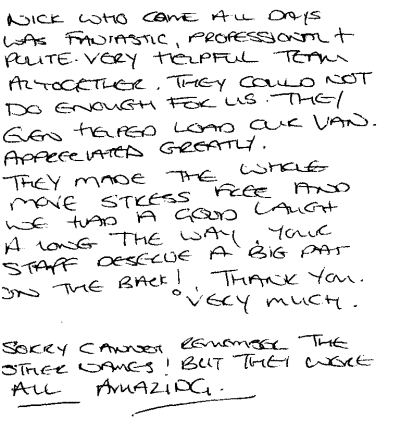 NICK WHO CAME ALL DAYS
WAS FANTASTIC, PROFESSIONAL +
POLITE. VERY HELPFUL TEAM
ALTOGETHER. THEY COULD NOT
DO ENOUGH FOR US. THEY
EVEN HELPED LOAD OUR VAN.
APPRECIATED GREATLY.
THEY MADE THE WHOLE
MOVE STRESS FREE AND
WE HAD A GOOD LAUGH
A LONG THE WAY, YOUR
STAFF DESERVE A BIG PAT
ON THE BACK! THANK YOU.
VERY MUCH.
SORRY CANNOT REMEMBER THE
OTHER NAMES! BUT THEY WERE
ALL AMAZING.